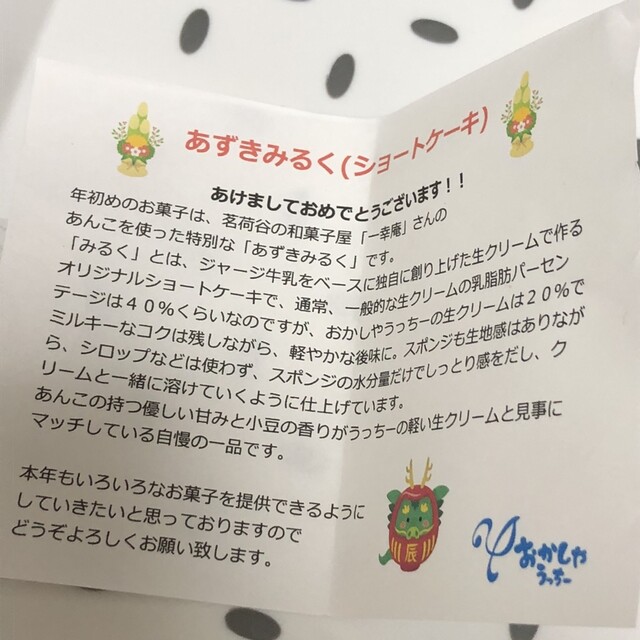 あずきみるく(ショートケーキ)
あけましておめでとうございます！！
年初めのお菓子は、茗荷谷の和菓子屋「一幸庵」さんの
あんこを使った特別な「あずきみるく」です。
「みるく」とは、ジャージ牛乳をベースに独自に創り上げた生クリームで作る
オリジナルショートケーキで、通常、一般的な生クリームの乳脂肪パーセン
テージは４０％くらいなのですが、おかしやうっちーの生クリームは２０％で
ミルキーなコクは残しながら、軽やかな後味に。スポンジも生地感はありなが
ら、シロップなどは使わず、スポンジの水分量だけでしっとり感をだし、ク
リームと一緒に溶けていくように仕上げています。
あんこの持つ優しい甘みと小豆の香りがうっちーの軽い生クリームと見事に
マッチしている自慢の一品です。
本年もいろいろなお菓子を提供できるように
していきたいと思っておりますので
どうぞよろしくお願い致します。
辰
おかしや
うっちー